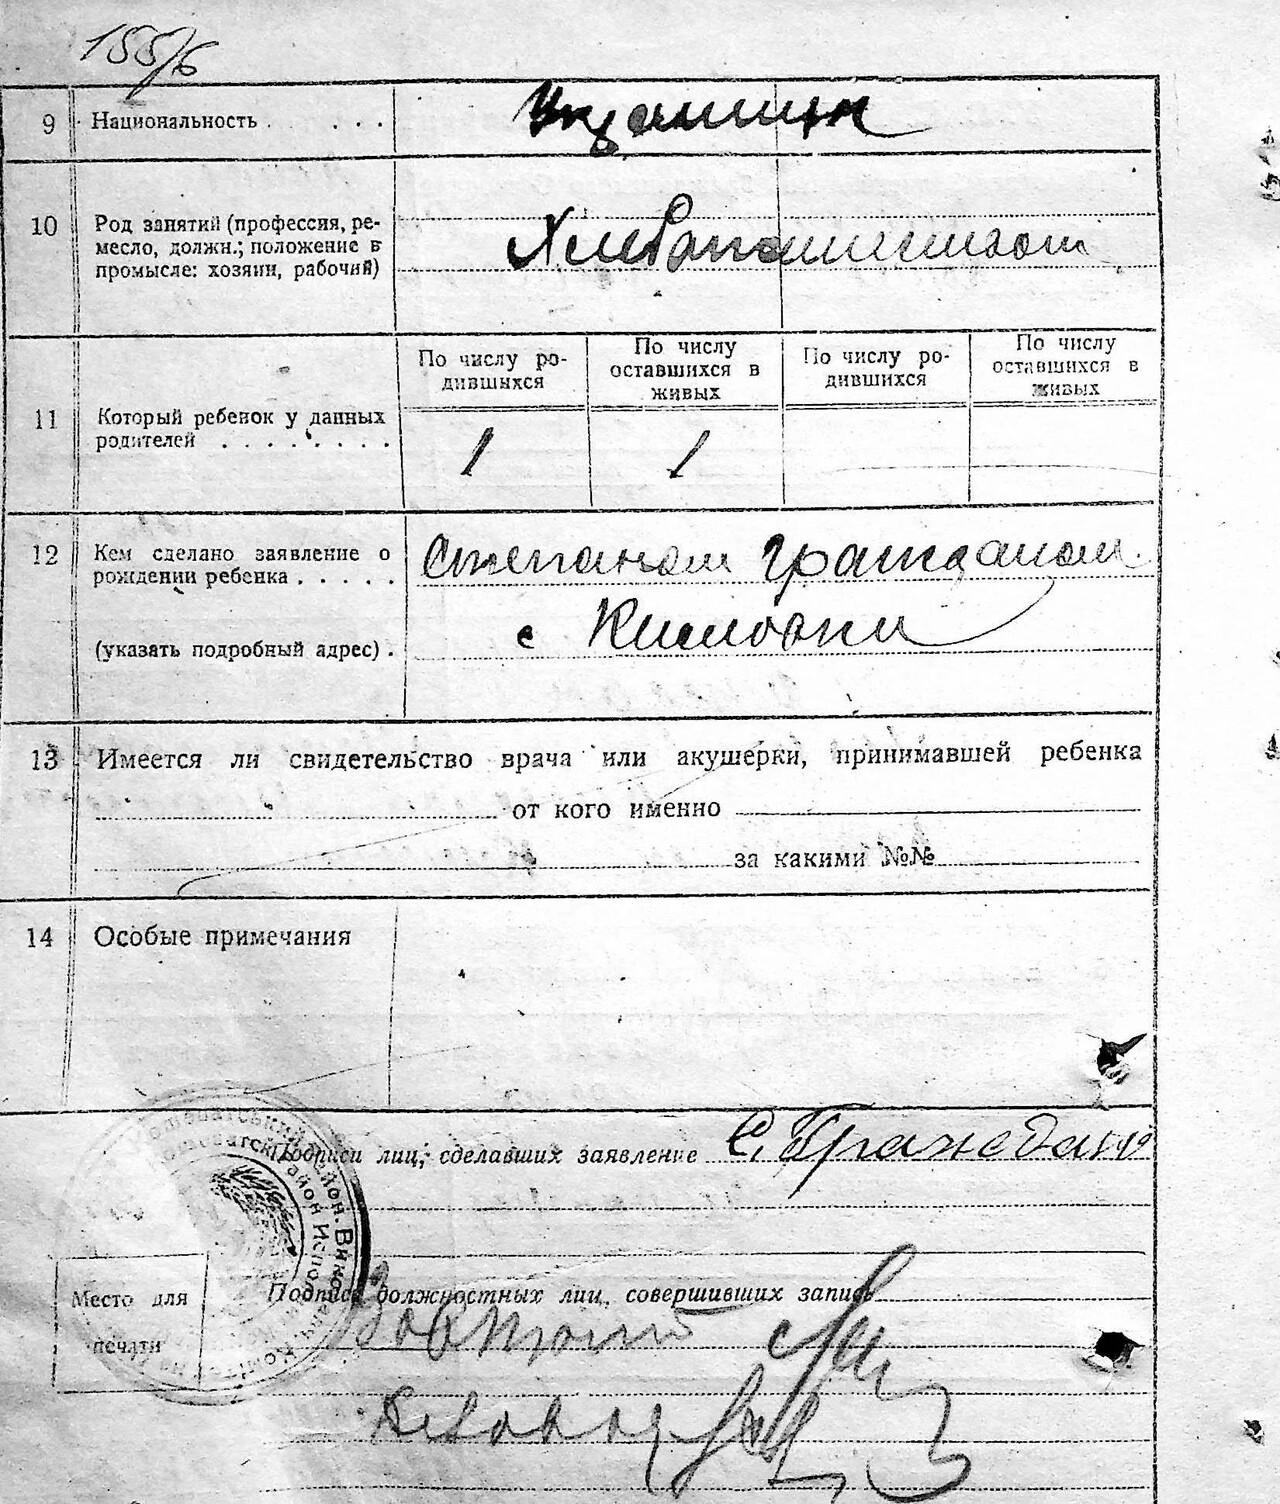 155/6
9 Национальность . . . . Украинцы
10 Род занятий (профессия, ре-
месло, должн.; положение в
промысле: хозяин, рабочий)
Хлебопашеством
По числу ро-
дившихся
По числу
оставшихся в
живых
По числу ро-
дившихся
По числу
оставшихся в
живых
11 Который ребенок у данных
родителей . . . . . . . . 1 1
12 Кем сделано заявление о
рождении ребенка . . . . .
Степаном Гражданом
(указать подробный адрес) .
с Кисловки
13 Имеется ли свидетельство врача или акушерки, принимавшей ребенка
от кого именно
за какими №№
14 Особые примечания
Подписи лиц, сделавших заявление С. Граждан
Подписи должностных лиц, совершивших запись
Место для
печати
Завтзагс
Деловод